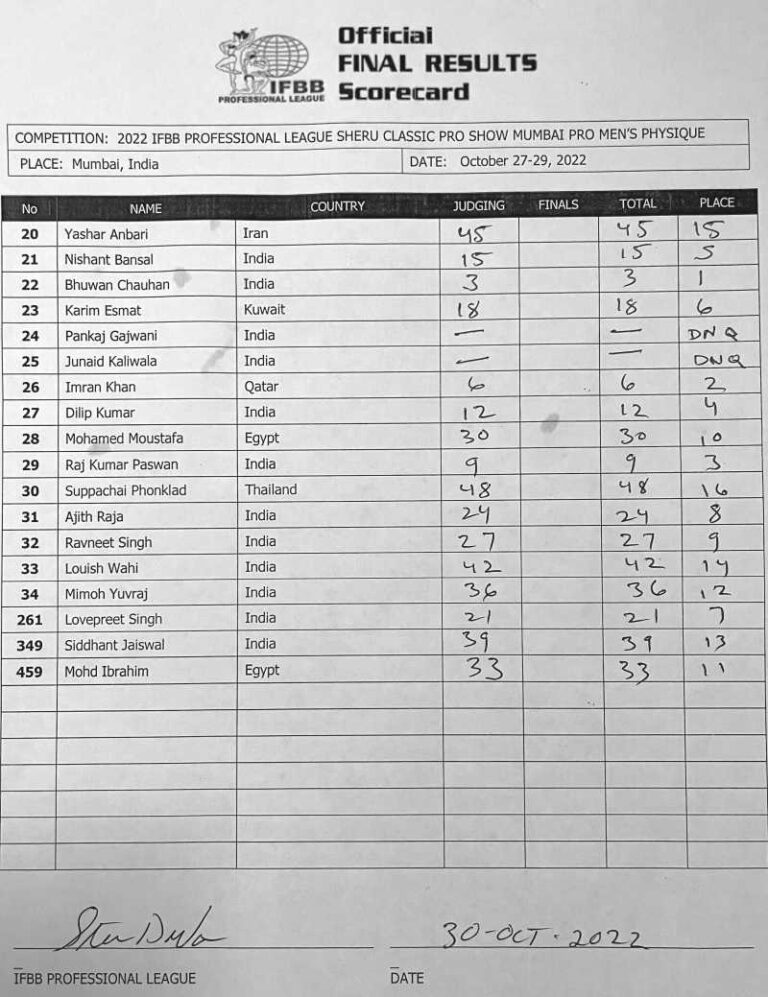 Official
FINAL RESULTS
Scorecard
IFBB
PROFESSIONAL LEAGUE
COMPETITION: 2022 IFBB PROFESSIONAL LEAGUE SHERU CLASSIC PRO SHOW MUMBAI PRO MEN'S PHYSIQUE
PLACE: Mumbai, India DATE: October 27-29, 2022
No NAME COUNTRY JUDGING FINALS TOTAL PLACE
20 Yashar Anbari Iran 45 45 15
21 Nishant Bansal India 15 15 5
22 Bhuwan Chauhan India 3 3 1
23 Karim Esmat Kuwait 18 18 6
24 Pankaj Gajwani India — — DNQ
25 Junaid Kaliwala India — — DNQ
26 Imran Khan Qatar 6 6 2
27 Dilip Kumar India 12 12 4
28 Mohamed Moustafa Egypt 30 30 10
29 Raj Kumar Paswan India 9 9 3
30 Suppachai Phonklad Thailand 48 48 16
31 Ajith Raja India 24 24 8
32 Ravneet Singh India 27 27 9
33 Louish Wahi India 42 42 14
34 Mimoh Yuvraj India 36 36 12
261 Lovepreet Singh India 21 21 7
349 Siddhant Jaiswal India 39 39 13
459 Mohd Ibrahim Egypt 33 33 11
30-OCT-2022
IFBB PROFESSIONAL LEAGUE DATE